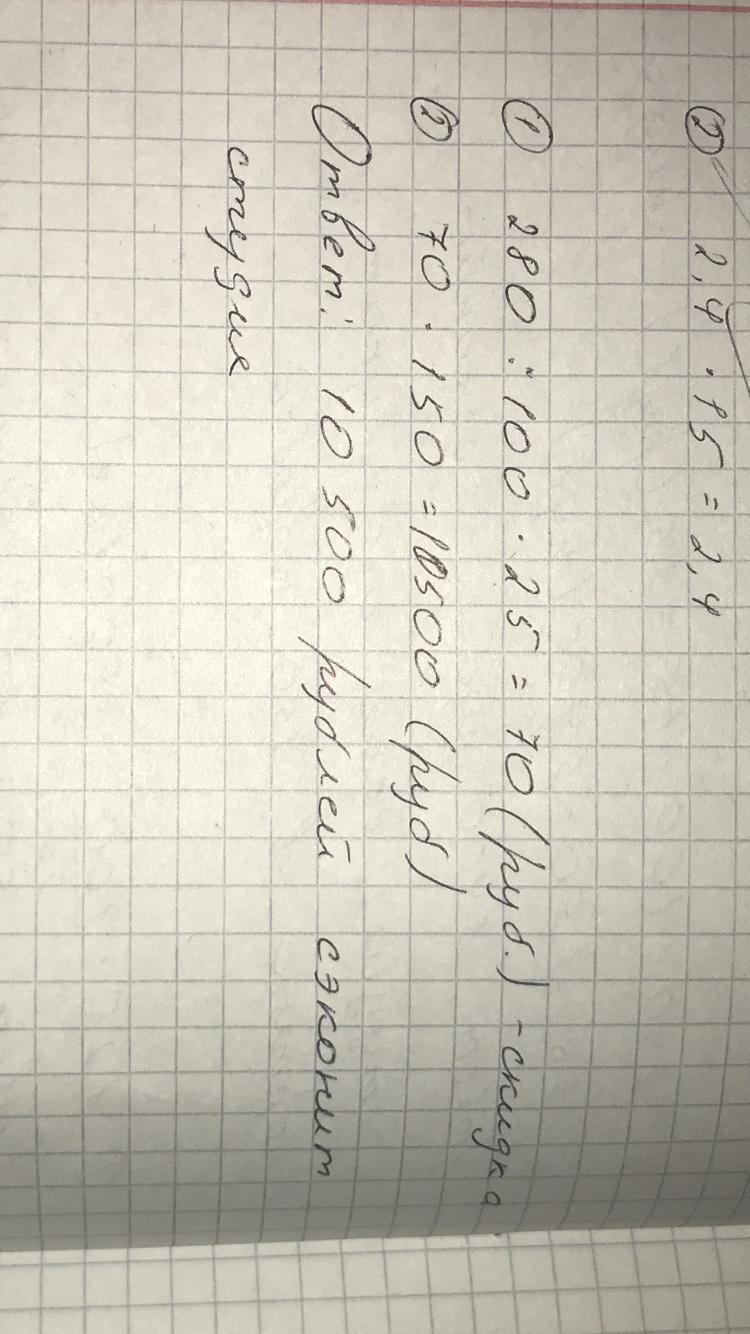 ② 2,4 · 15 = 2,4
① 280 : 100 · 25 = 70 (руб.) - скидка
② 70 · 150 = 10500 (руб)
Ответ: 10 500 рублей сэконит
студия